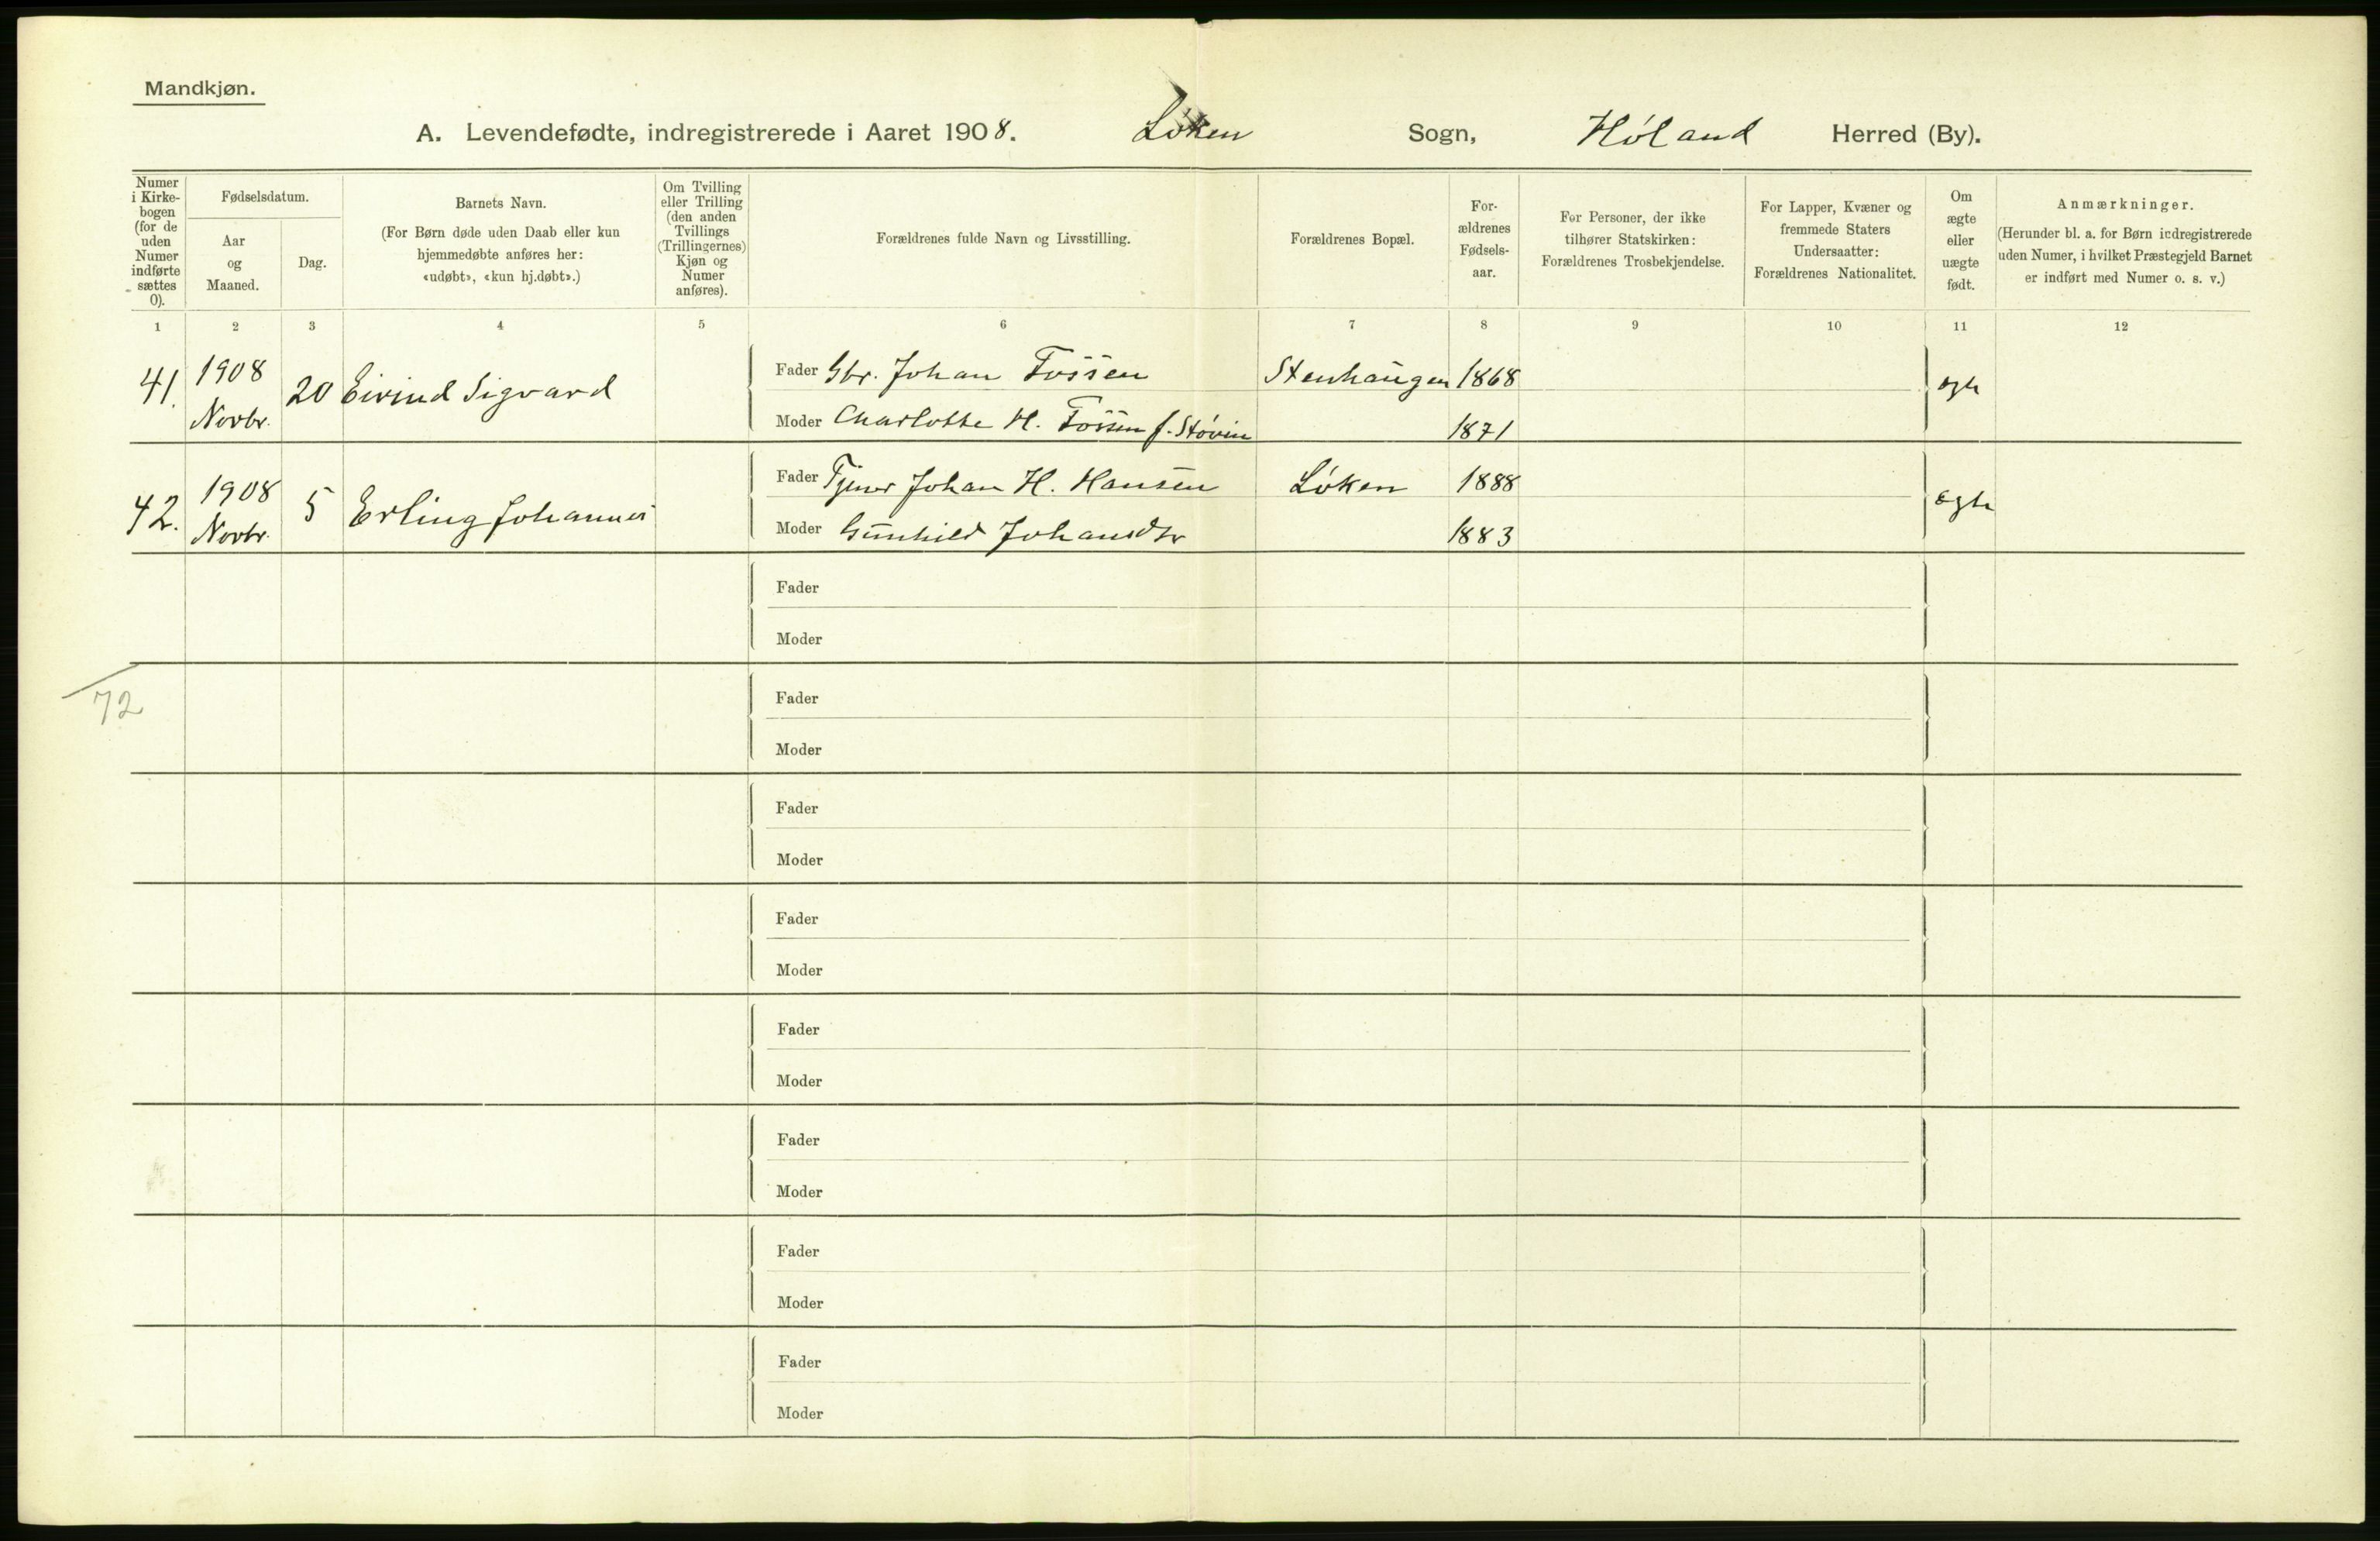 Mandkjøn.
A. Levendefødte, indregistrerede i Aaret 1908. Løken Sogn, Høland Herred (By).
Numer i Kirkebogen (for de uden Numer indførte sættes 0).
Fødselsdatum.
Aar og Maaned.
Dag.
Barnets Navn.
(For Børn døde uden Daab eller kun
hjemmedøbte anføres her:
«udøbt», «kun hj.døbt».)
Om Tvilling
eller Trilling
(den anden
Tvillings
(Trillingernes)
Kjøn og
Numer
anføres).
Forældrenes fulde Navn og Livsstilling.
Forældrenes Bopæl.
For-
ældrenes
Fødsels-
aar.
For Personer, der ikke
tilhører Statskirken:
Forældrenes Trosbekjendelse.
For Lapper, Kvæner og
fremmede Staters
Undersaatter:
Forældrenes Nationalitet.
Om
ægte
eller
uægte
født.
Anmærkninger.
(Herunder bl. a. for Børn indregistrerede
uden Numer, i hvilket Præstegjeld Barnet
er indført med Numer o. s. v.)
1 2 3 4 5 6 7 8 9 10 11 12
41. 1908 Novbr. 20 Eivind Sigvard
Fader Gbr. Johan Fossen Stenhaugen 1868 ægte
Moder Charlotte H. Fossen f. Støvin 1871
42. 1908 Novbr. 5 Erling Johannes
Fader Tjener Johan H. Hansen Løken 1888 ægte
Moder Gunhild Johansdtr 1883
Fader
Moder
72
Fader
Moder
Fader
Moder
Fader
Moder
Fader
Moder
Fader
Moder
Fader
Moder
Fader
Moder